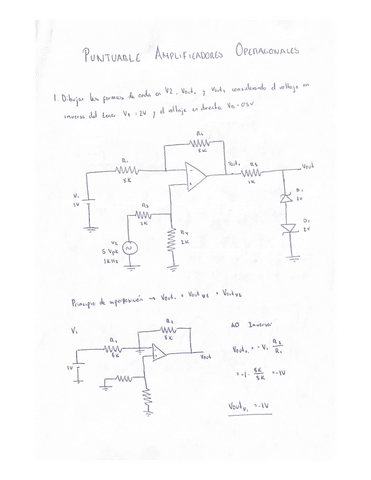 PUNTUABLE AMPLIFICADORES OPERACIONALES
1. Dibujar las formas de onda en V2, Vout, y Vout, considerando el voltaje en
inverso del zener Vz = 2V y el voltaje en directa VD =
R2
8K
R1
8K
Vout1
R5
1K
Vout
V1
1V
R3
1K
R4
2K
V2
5 Vpk
1KHz
D1
2V
D2
2V
Principio de superposición → Vout1 =
V1
R2
8K
R1
8K
Vout
1V
AO Inversor
Vout = -V1 R2
R1
= -1 · 8K
8K = -1V
VoutV1 = -1V